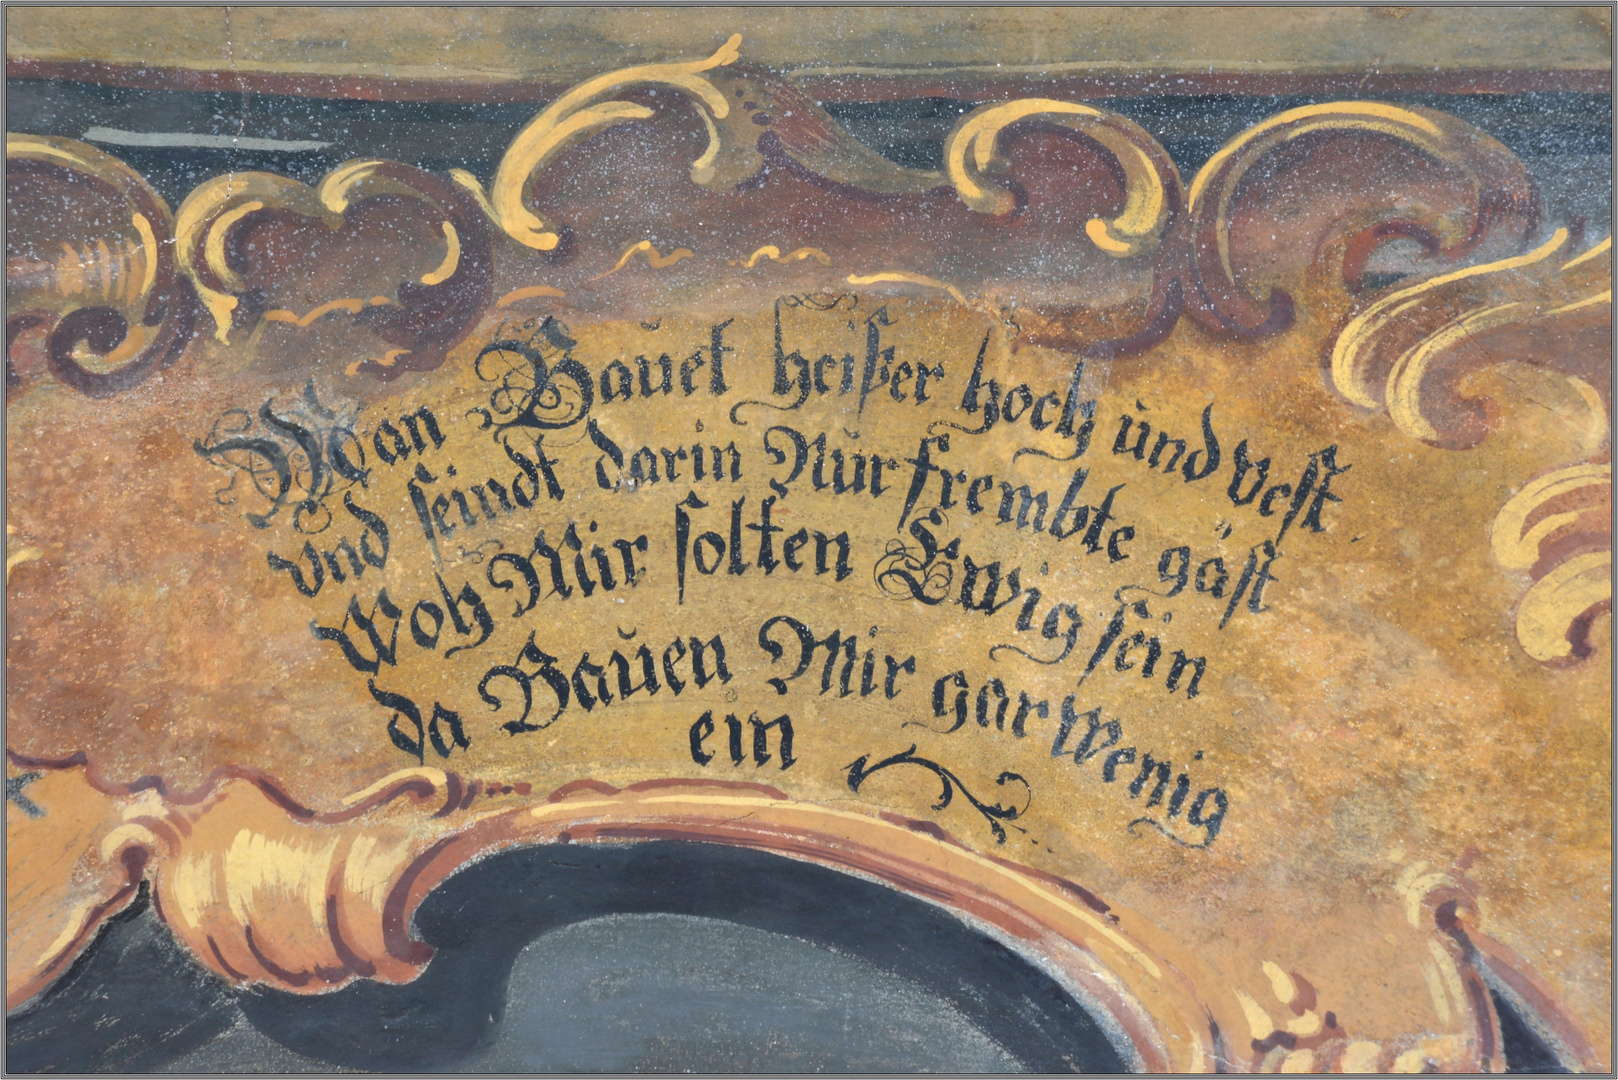 Man Bauet heißer hoch und vest
vnd seindt darin Nŭr frembte gäst
Woh Mir solten Ewig sein
da Baŭen Mir gar wenig
ein